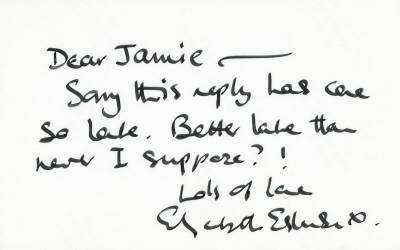 Dear Jamie —
Sorry this reply has come
so late. Better late than
never I suppose?!
Lots of love
Elizabeth x